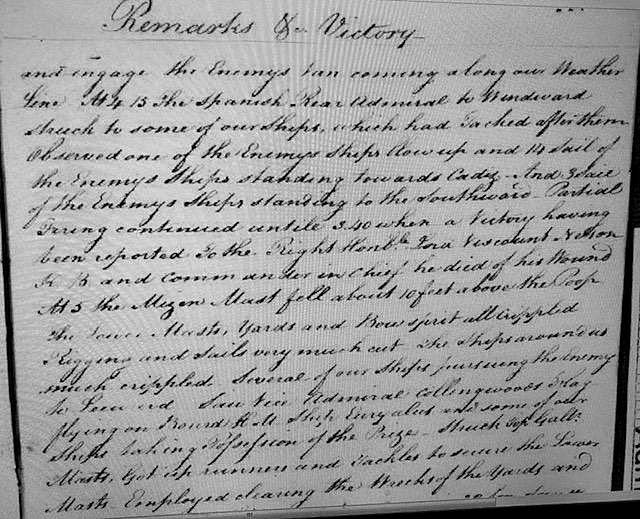 Remarks &c. Victory
and engage the Enemys Van coming along our Weather
Line At 4 15 The Spanish Rear Admiral to Windward
struck to some of our Ships, which had Tacked after them
Observed one of the Enemys Ships Blow up and 14 Sail of
the Enemys Ships standing towards Cadiz - And 3 Sail
of the Enemys Ships standing to the Southward - Partial
Firing continued untile 3.40 when a Victory having
been reported To the Right Honble. Lord Viscount Nelson
K B and Commander in Chief he died of his Wound
At 5 the Mizen Mast fell about 10 feet above the Poop
The Lower Masts, Yards and Bowspirit all Crippled
Rigging and Sails very much cut The Ships around us
much crippled Several of our Ships pursuing the Enemy
To Leeward Saw Vice Admiral Collingwoods Flag
flying on Board H. M. Ship Euryalus and some of our
Ships taking Possession of the Prize - Struck Top Gallt:
Masts, Got up runners and Tackles to secure the Lower
Masts Employed clearing the Wrecks of the Yards and